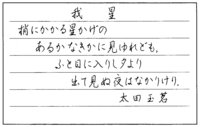 我星
梢にかかる星かげの
あるかなきかに見ゆれども、
ふと目に入りし夕より
出て見ぬ夜はなかりけり。
太田玉茗